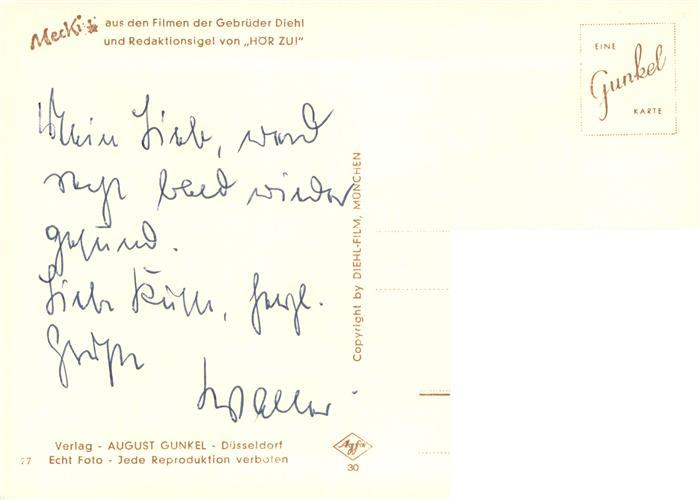 Mecki aus den Filmen der Gebrüder Diehl
und Redaktionsigel von „HÖR ZU!"
EINE
Gunkel
KARTE
Mein Lieb, werd
bald wieder
gesund.
Liebe Küsse, herzl.
Grüße
Copyright by DIEHL-FILM, MÜNCHEN
Verlag - AUGUST GUNKEL - Düsseldorf
77 Echt Foto - Jede Reproduktion verboten
Agfa
30